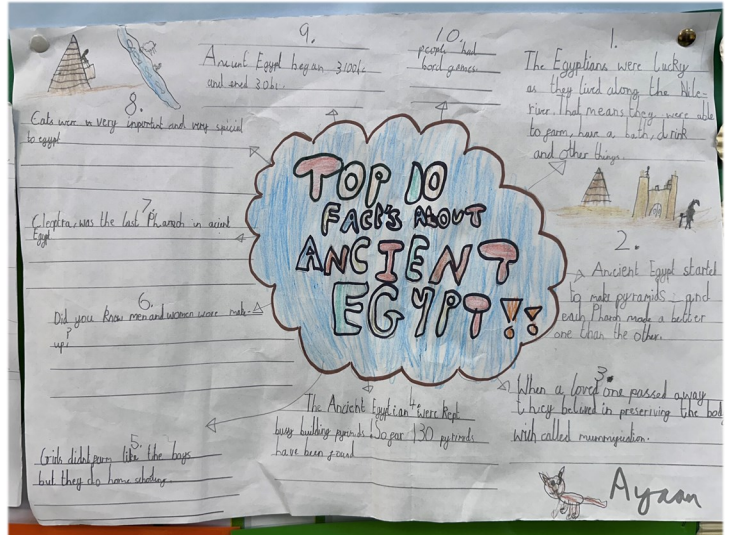 TOP 10
FACE'S ABOUT
ANCIENT
EGYPT!!
1.
The Egyptians were lucky
as they lived along the Nile
river. That means they were able
to farm, have a bath, drink
and other things.
2.
Ancient Egypt started
to make pyramids and
each Pharoh made a better
one than the other.
3.
When a loved one passed away
they belived in preserving the body
with called mummyication.
4
The Ancient Egyptian were kept
busy building pyramids. So ear 130 pyramids
have been found
5.
Girls didn't learn like the boys
but they do home scholing.
6.
Did you know men and women wore make
up?
7.
Cleoptra, was the last Pharaoh in acient
Egypt
8.
Cats were very important and very spicial
to egypt
9.
Ancient Egypt began 3100bc
and ened 30bc.
10.
people had
bord games.
Ayaan